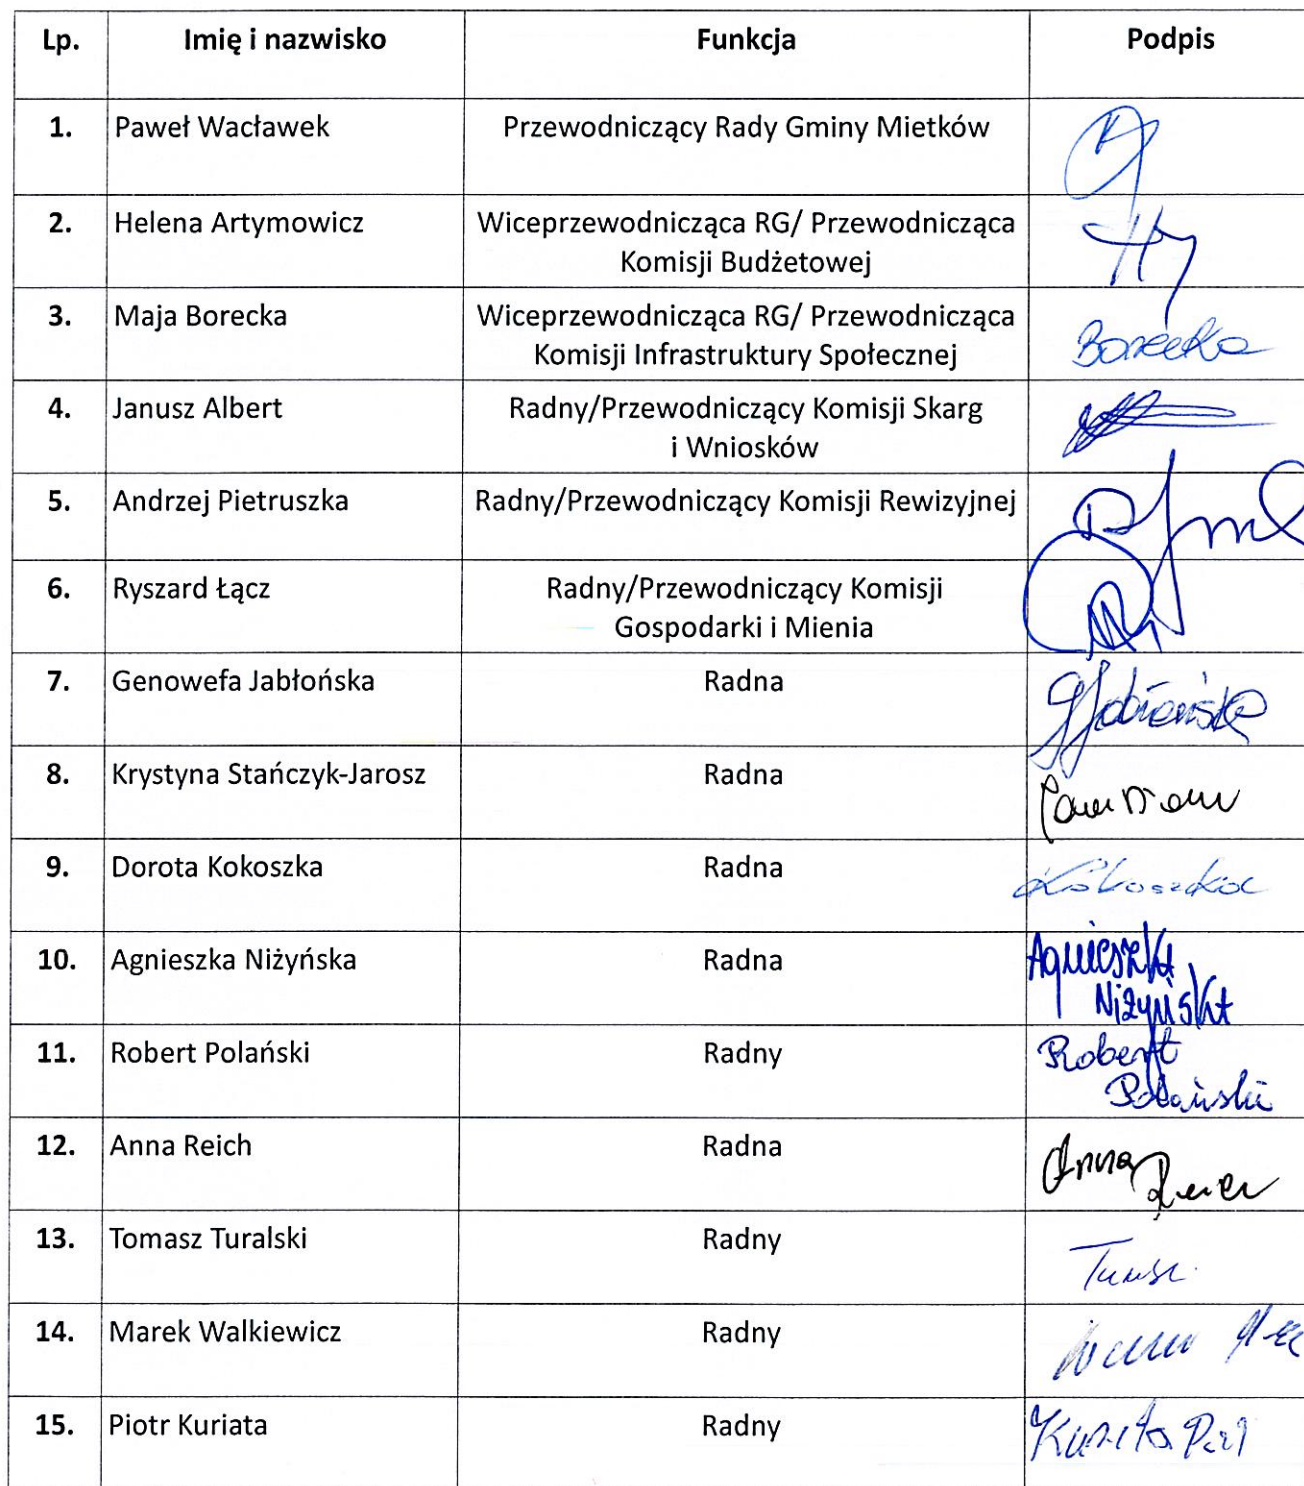 Lp. Imię i nazwisko Funkcja Podpis
1. Paweł Wacławek Przewodniczący Rady Gminy Mietków
2. Helena Artymowicz Wiceprzewodnicząca RG/ Przewodnicząca
Komisji Budżetowej
3. Maja Borecka Wiceprzewodnicząca RG/ Przewodnicząca
Komisji Infrastruktury Społecznej Borecka
4. Janusz Albert Radny/Przewodniczący Komisji Skarg
i Wniosków
5. Andrzej Pietruszka Radny/Przewodniczący Komisji Rewizyjnej
6. Ryszard Łącz Radny/Przewodniczący Komisji
Gospodarki i Mienia
7. Genowefa Jabłońska Radna GJabłońska
8. Krystyna Stańczyk-Jarosz Radna
9. Dorota Kokoszka Radna Kokoszka
10. Agnieszka Niżyńska Radna Agnieszka
Niżyńska
11. Robert Polański Radny Robert
Polański
12. Anna Reich Radna Anna
13. Tomasz Turalski Radny
14. Marek Walkiewicz Radny
15. Piotr Kuriata Radny Kuriata